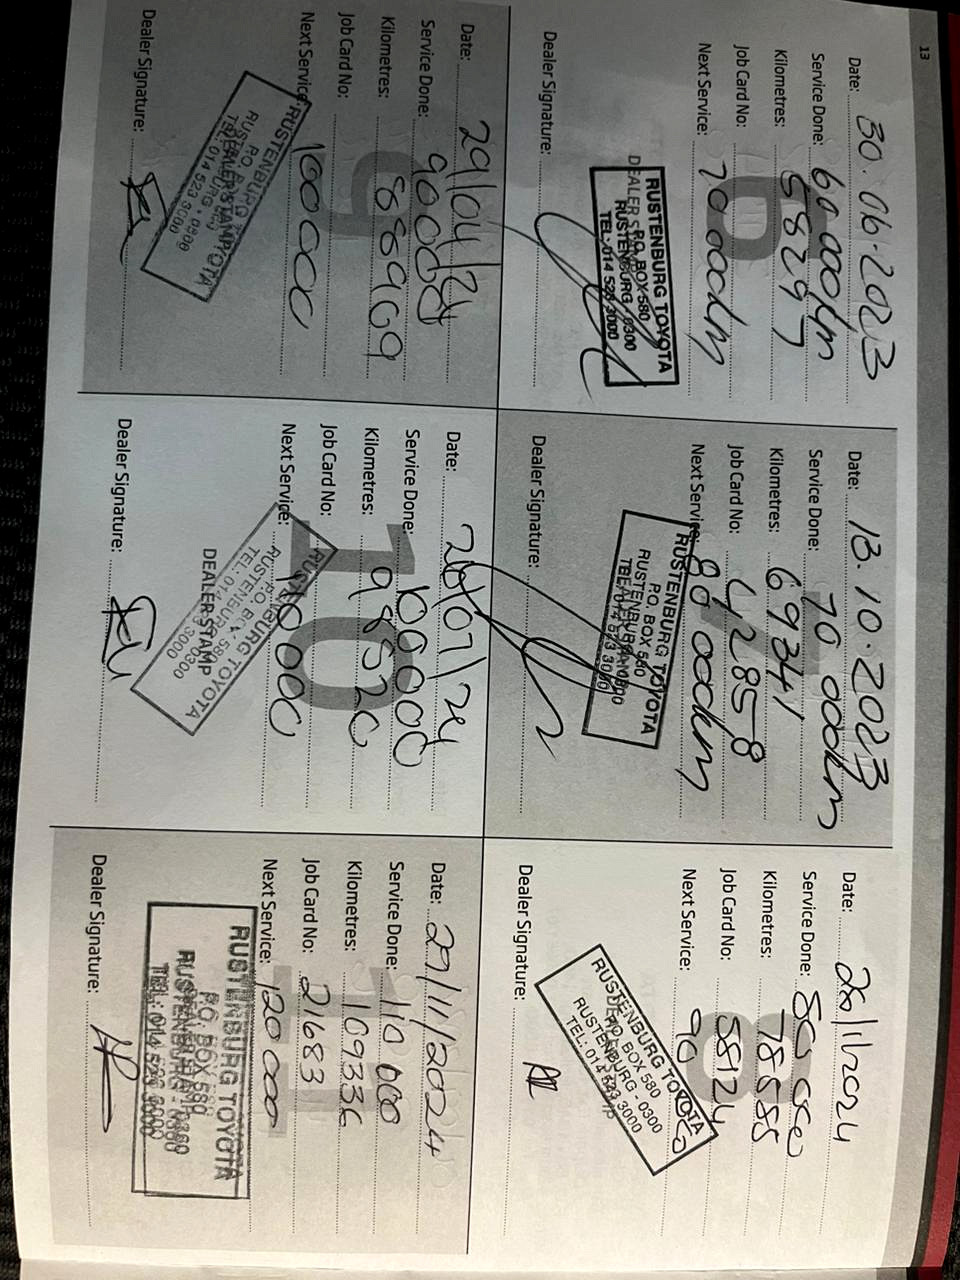 13
6
Date: 30.06.2023
Service Done: 60 000km
Kilometres: 58297
Job Card No:
Next Service: 70 000km
RUSTENBURG TOYOTA
P.O. BOX 580
RUSTENBURG - 0300
TEL: 014 523 3000
DEALER STAMP
Dealer Signature:
7
Date: 13.10.2023
Service Done: 70 000km
Kilometres: 69341
Job Card No: 42858
Next Service: 80 000km
RUSTENBURG TOYOTA
P.O. BOX 580
RUSTENBURG - 0300
TEL: 014 523 3000
DEALER STAMP
Dealer Signature:
8
Date: 26/1/2024
Service Done: 80 000
Kilometres: 78585
Job Card No: 58124
Next Service: 90 000
RUSTENBURG TOYOTA
P.O. BOX 580
RUSTENBURG - 0300
TEL: 014 523 3000
Dealer Signature:
9
Date: 29/04/24
Service Done: 90000
Kilometres: 888909
Job Card No:
Next Service: 100 000
RUSTENBURG TOYOTA
P.O. BOX
DEALER STAMP
TEL: 014 523 3000
Dealer Signature:
10
Date: 26/07/24
Service Done: 100000
Kilometres: 98520
Job Card No:
Next Service: 110 000
RUSTENBURG TOYOTA
P.O. BOX 580
RUSTENBURG 0300
TEL: 014 523 3000
DEALER STAMP
Dealer Signature:
11
Date: 27/11/2024
Service Done: 110 000
Kilometres: 109336
Job Card No: 21683
Next Service: 120 000
RUSTENBURG TOYOTA
P.O. BOX 580
RUSTENBURG - 0300
TEL: 014 523 3000
Dealer Signature: